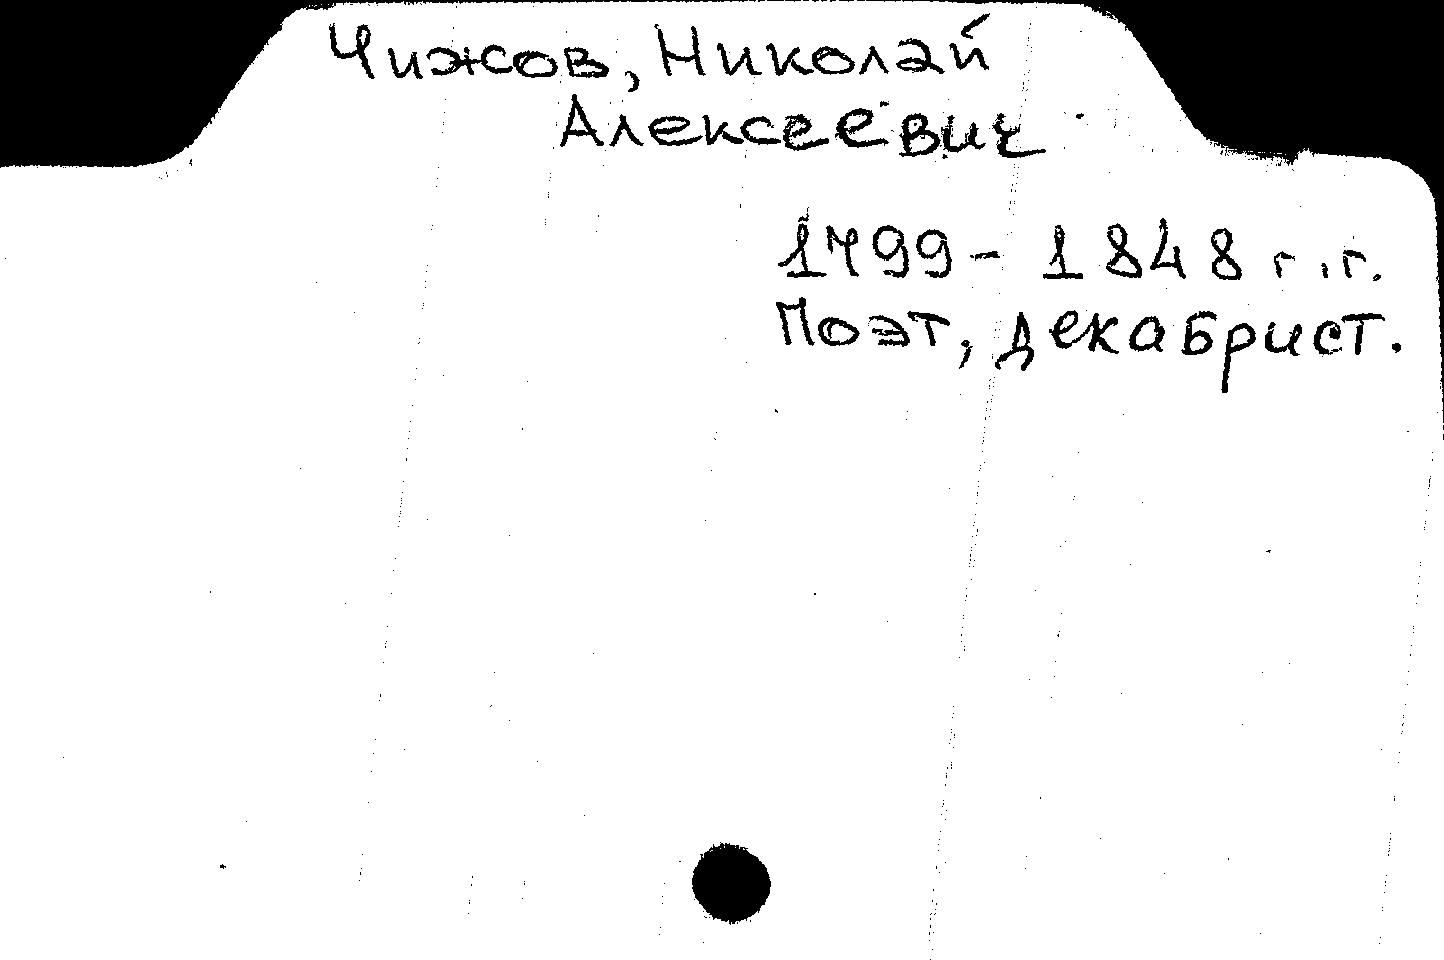 Чижов, Николай
Алексеевич
1799 - 1848 г.г.
Поэт, декабрист.